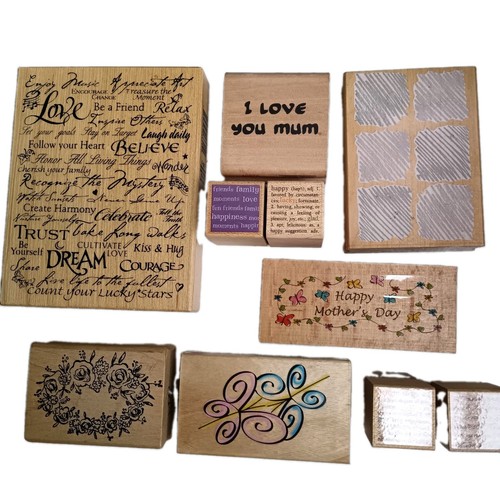 Enjoy Music Appreciate Art
ENCOURAGE CHANGE
Treasure the Moment
Love
Be a Friend
Relax
Inspire Others
Set your goals Stay on Target Laugh daily
Follow your Heart BELIEVE
Honor All Living Things
Cherish your family
Wander
Recognize the Mystery
Watch Sunsets Never Give Up
Create Harmony Celebrate
Tell the Truth
TRUST Take Long Walks
Be Yourself
DREAM
CULTIVATE LOVE
Kiss & Hug
Share
COURAGE
Live Life to the fullest
Count your Lucky Stars
I LOVE
YOU MUM
friends family
moments love
fun friends family
happiness
moments happin
happy (hap'i), adj. 1.
favored by circumstances;
lucky; fortunate.
2. having, showing, or
causing a feeling of
pleasure, joy, etc.; glad.
Happy
Mother's Day